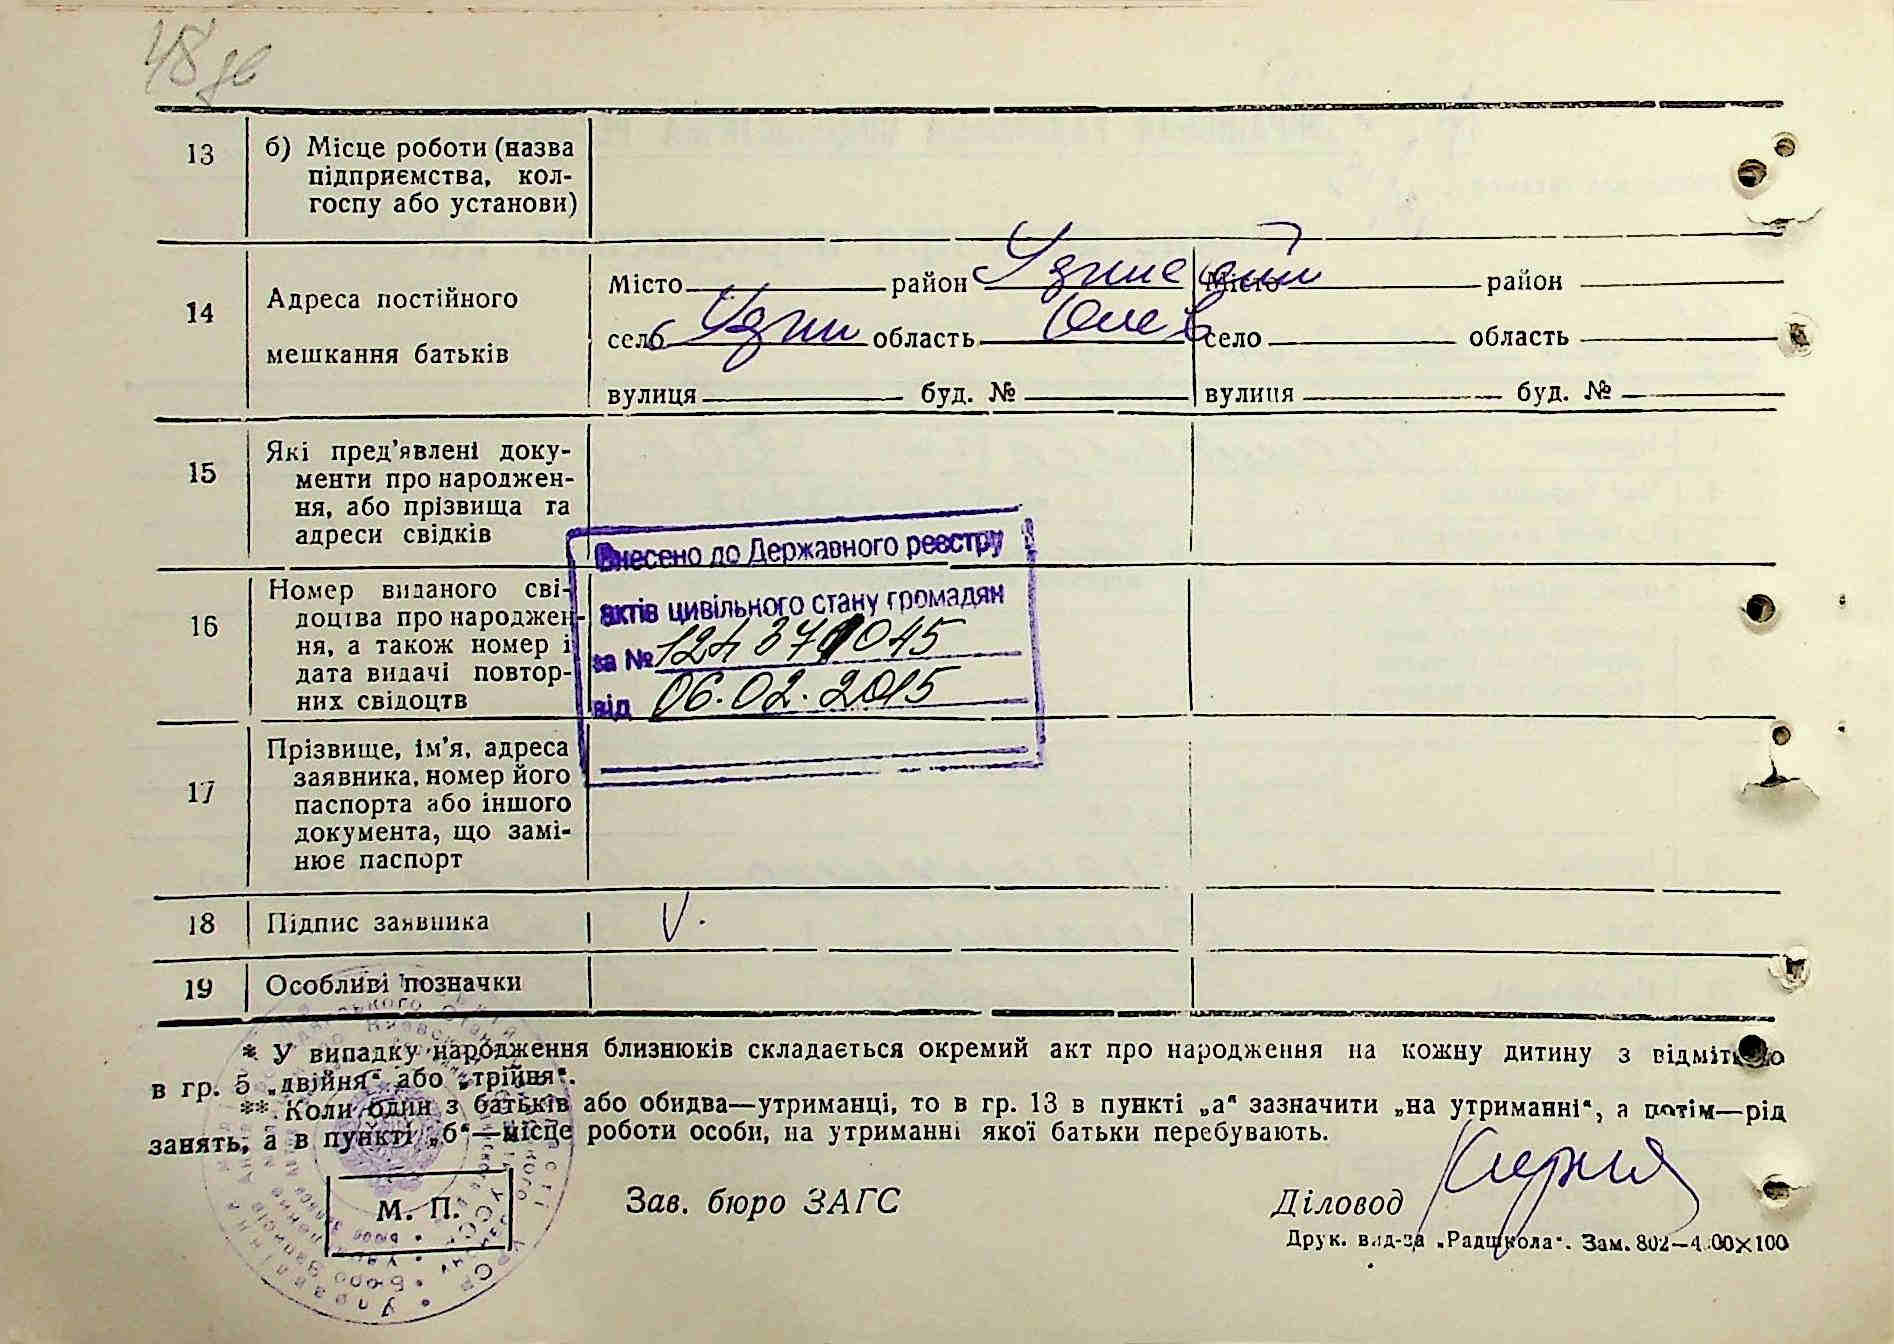 48 зв
13 б) Місце роботи (назва
підприємства, кол-
госпу або установи)
14 Адреса постійного
мешкання батьків
Місто район
село Узин область
вулиця буд. №
Місто район
село область
вулиця буд. №
15 Які пред'явлені доку-
менти про народжен-
ня, або прізвища та
адреси свідків
16 Номер виданого сві-
доцтва про народжен-
ня, а також номер і
дата видачі повтор-
них свідоцтв
Внесено до Державного реєстру
актів цивільного стану громадян
за №
від 06.02.2015
17 Прізвище, ім'я, адреса
заявника, номер його
паспорта або іншого
документа, що замі-
нює паспорт
18 Підпис заявника V.
19 Особливі позначки
* У випадку народження близнюків складається окремий акт про народження на кожну дитину з
в гр. 5 „двійня“ або „трійня“.
** Коли один з батьків або обидва—утриманці, то в гр. 13 в пункті „а“ зазначити „на утриманні“, а потім—рід
занять, а в пункті „б“—місце роботи особи, на утриманні якої батьки перебувають.
М. П.
Зав. бюро ЗАГС
Діловод
Друк. вид-ва „Радшкола“. Зам. 802—